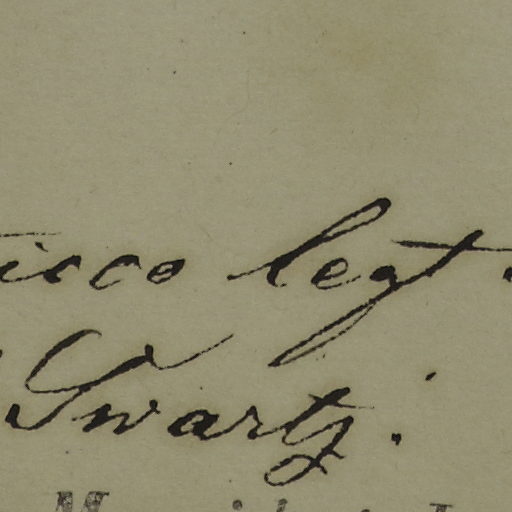 isco legt
Swartz.